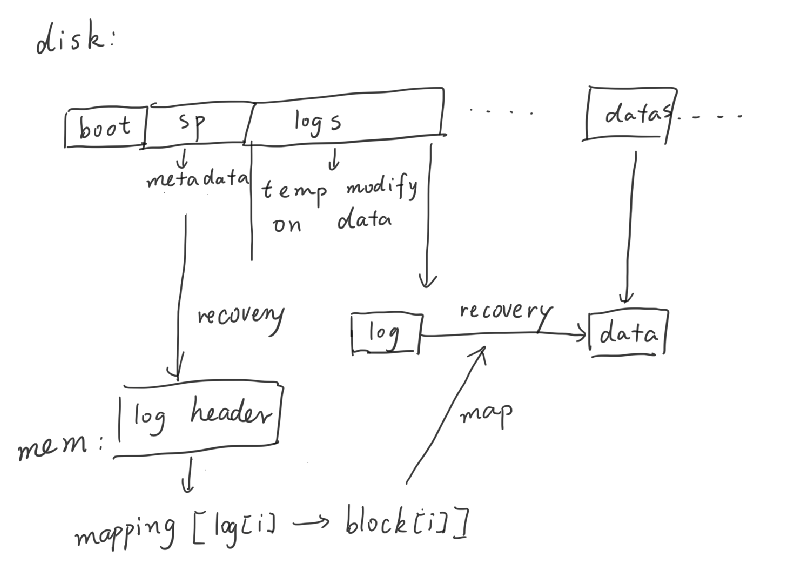 disk:
boot sp logs ···· datas ····
metadata
temp modify
on data
recovery
log recovery data
map
mem: log header
mapping [log[i] → block[i]]